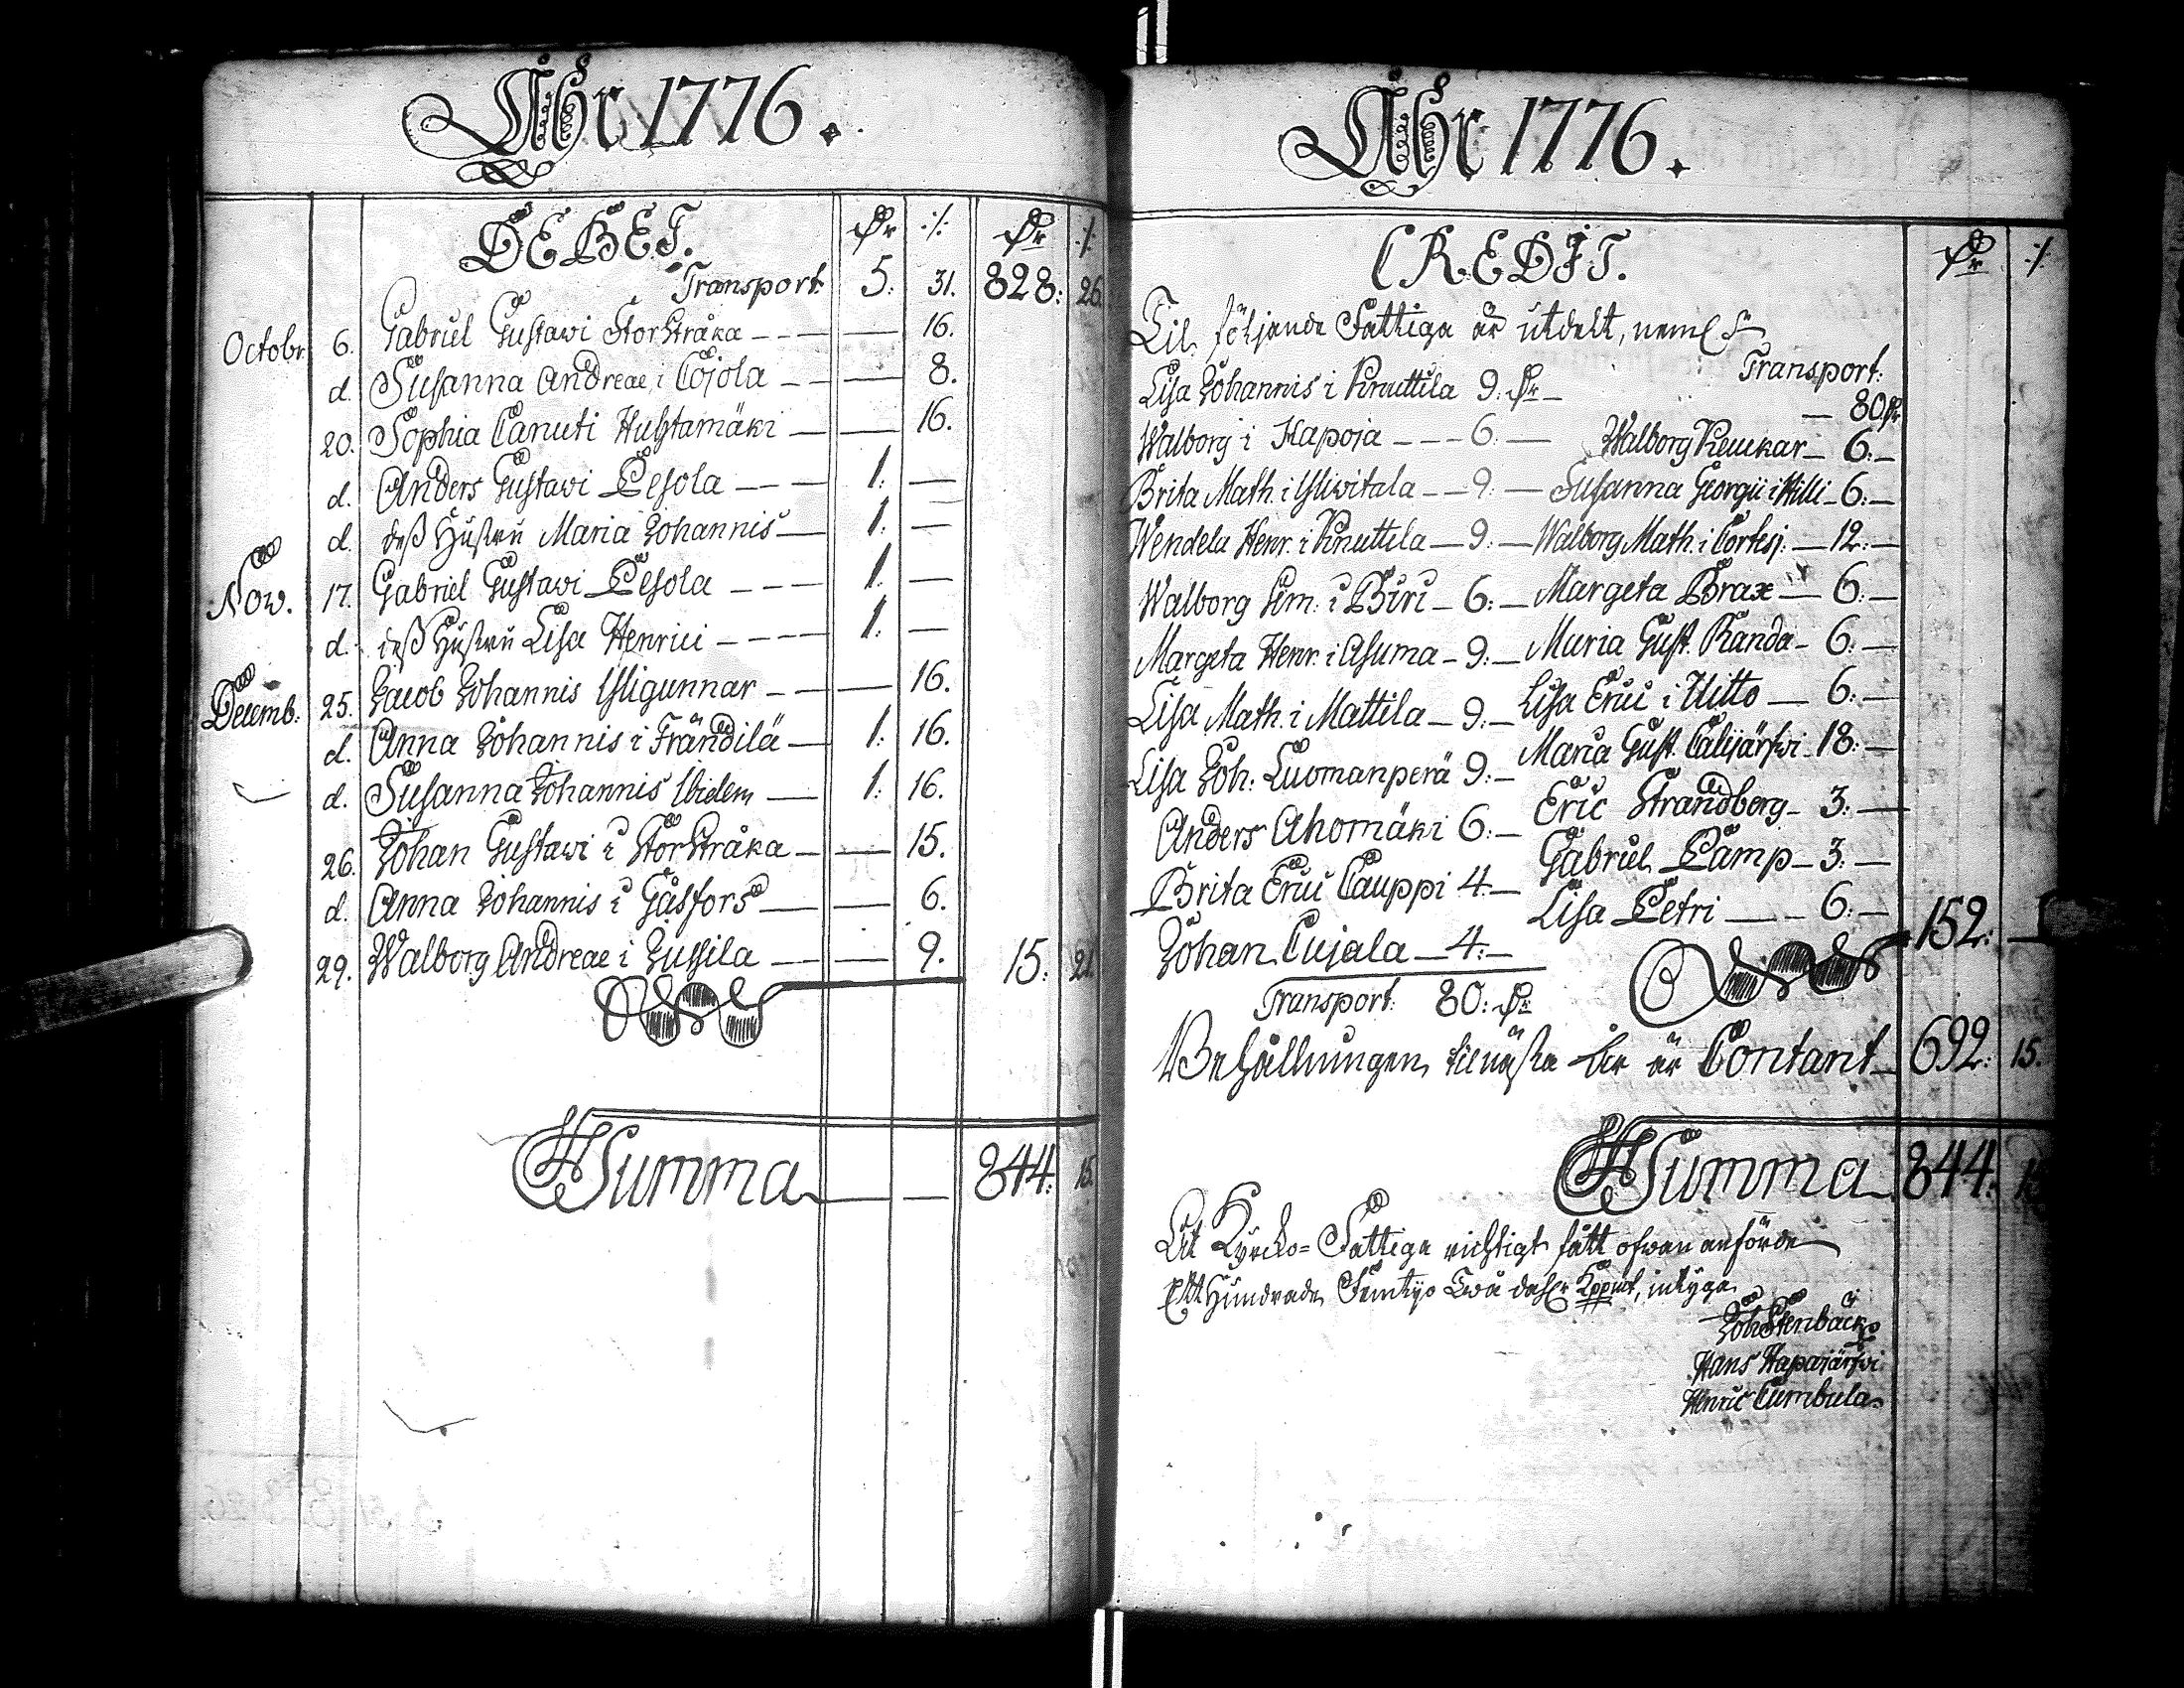 Åhr 1776.
DEBET. Dr ./. Dr ./.
Transport: 5: 31. 828: 26.
Octobr. 6. Gabriel Gustavi Storstråka — 16.
d. Susanna Andreae i Cojola — 8.
20. Sophia Canuti Huhtamäki — 16.
d. Anders Gustavi Pesola — 1: —
d. deß Hustru Maria Johannis — 1: —
Nov. 17. Gabriel Gustavi Pesola — 1: —
d. deß Hustru Lisa Henrici — 1: —
Decemb: 25. Jacob Johannis Yligunnar — 16.
d. Anna Johannis i Frändilä — 1: 16.
d. Susanna Johannis Ibidem — 1: 16.
26. Johan Gustavi i Storstråka — 15.
d. Anna Johannis i Gåsfors — 6.
29. Walborg Andreae i Jussila — 9. 15: 21.
Summa — — 844: 15.
Åhr 1776.
CREDIT. Dr ./.
Til följande Fattiga är utdelt, neml.
Transport:
Lisa Johannis i Knuttila 9: Dr — — 80 Dr
Walborg i Hapoja — 6: — Walborg Keukar — 6: —
Brita Math. i Yliwitala — 9: — Susanna Georgii i Hilli — 6: —
Wendela Henr. i Knuttila — 9: — Walborg Math. i Cortesj: — 12: —
Walborg Sim: i Biri — 6: — Margeta Brax — 6: —
Margeta Henr. i Asuma — 9: — Maria Gust. Randa — 6: —
Lisa Math. i Mattila — 9: — Lisa Erici i Uitto — 6: —
Lisa Joh: Luomanperä 9: — Maria Gust. Calijärfwi — 18: —
Anders Ahomäki 6: — Eric Strandberg — 3: —
Brita Erici Cauppi 4: — Gabriel Pamp — 3: —
Johan Cujala — 4: — Lisa Petri — 6: — 152: —
Transport: 80: Dr
Behållningen til nästa år är Contant — 692: 15.
Summa 844:
At Kyrcko-Fattige richtigt fått ofwan anförde
Ett Hundrade Femtijo Twå dahlr Kppmt, intyga
Joh Stenbäck
Hans Hapajärfwi
Henric Cumbula